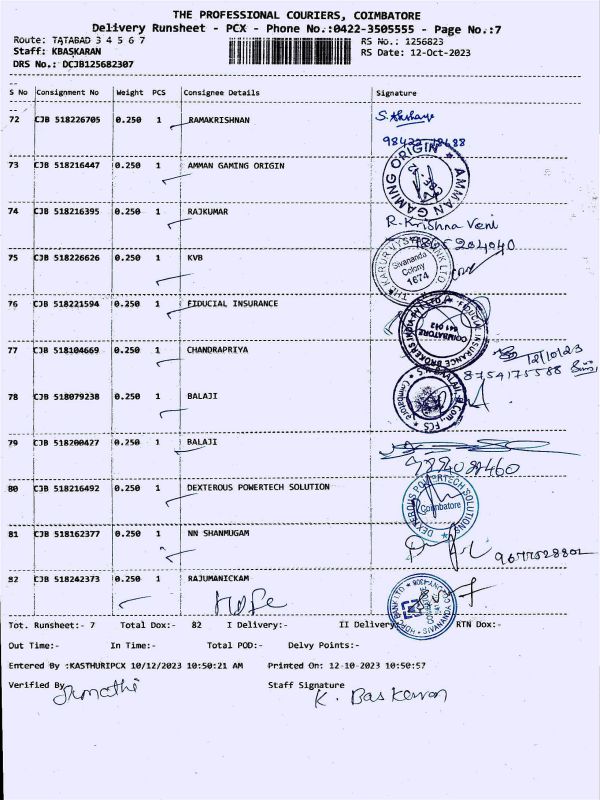 THE PROFESSIONAL COURIERS, COIMBATORE
Delivery Runsheet - PCX - Phone No.:0422-3505555 - Page No.:7
Route: TATABAD 3 4 5 6 7
RS No.: 1256823
Staff: KBASKARAN
RS Date: 12-Oct-2023
DRS No.: DCJB125682307
S No Consignment No Weight PCS Consignee Details Signature
72 CJB 518226705 0.250 1 RAMAKRISHNAN
73 CJB 518216447 0.250 1 AMMAN GAMING ORIGIN
AMMAN GAMING ORIGIN
74 CJB 518216395 0.250 1 RAJKUMAR R. Krishna Veni
75 CJB 518226626 0.250 1 KVB
Sivananda
Colony
1674
76 CJB 518221594 0.250 1 FIDUCIAL INSURANCE
COIMBATORE
641 012
77 CJB 518104669 0.250 1 CHANDRAPRIYA
12/10/23
8754175588
78 CJB 518079238 0.250 1 BALAJI
79 CJB 518200427 0.250 1 BALAJI
80 CJB 518216492 0.250 1 DEXTEROUS POWERTECH SOLUTION
DEXTEROUS POWERTECH SOLUTIONS
Coimbatore
81 CJB 518162377 0.250 1 NN SHANMUGAM
9677528802
82 CJB 518242373 0.250 1 RAJUMANICKAM
HDFC BANK LTD
Tot. Runsheet:- 7 Total Dox:- 82 I Delivery:- II Delivery:- RTN Dox:-
Out Time:- In Time:- Total POD:- Delvy Points:-
Entered By :KASTHURIPCX 10/12/2023 10:50:21 AM Printed On: 12-10-2023 10:50:57
Verified By Staff Signature
K. Baskaran